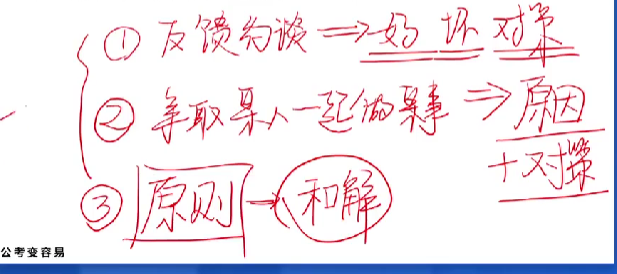 ① 反馈约谈 ⇒ 好 坏 对策
② 争取某人一起做某事 ⇒ 原因
+对策
③ 原则 → 和解
公考变容易